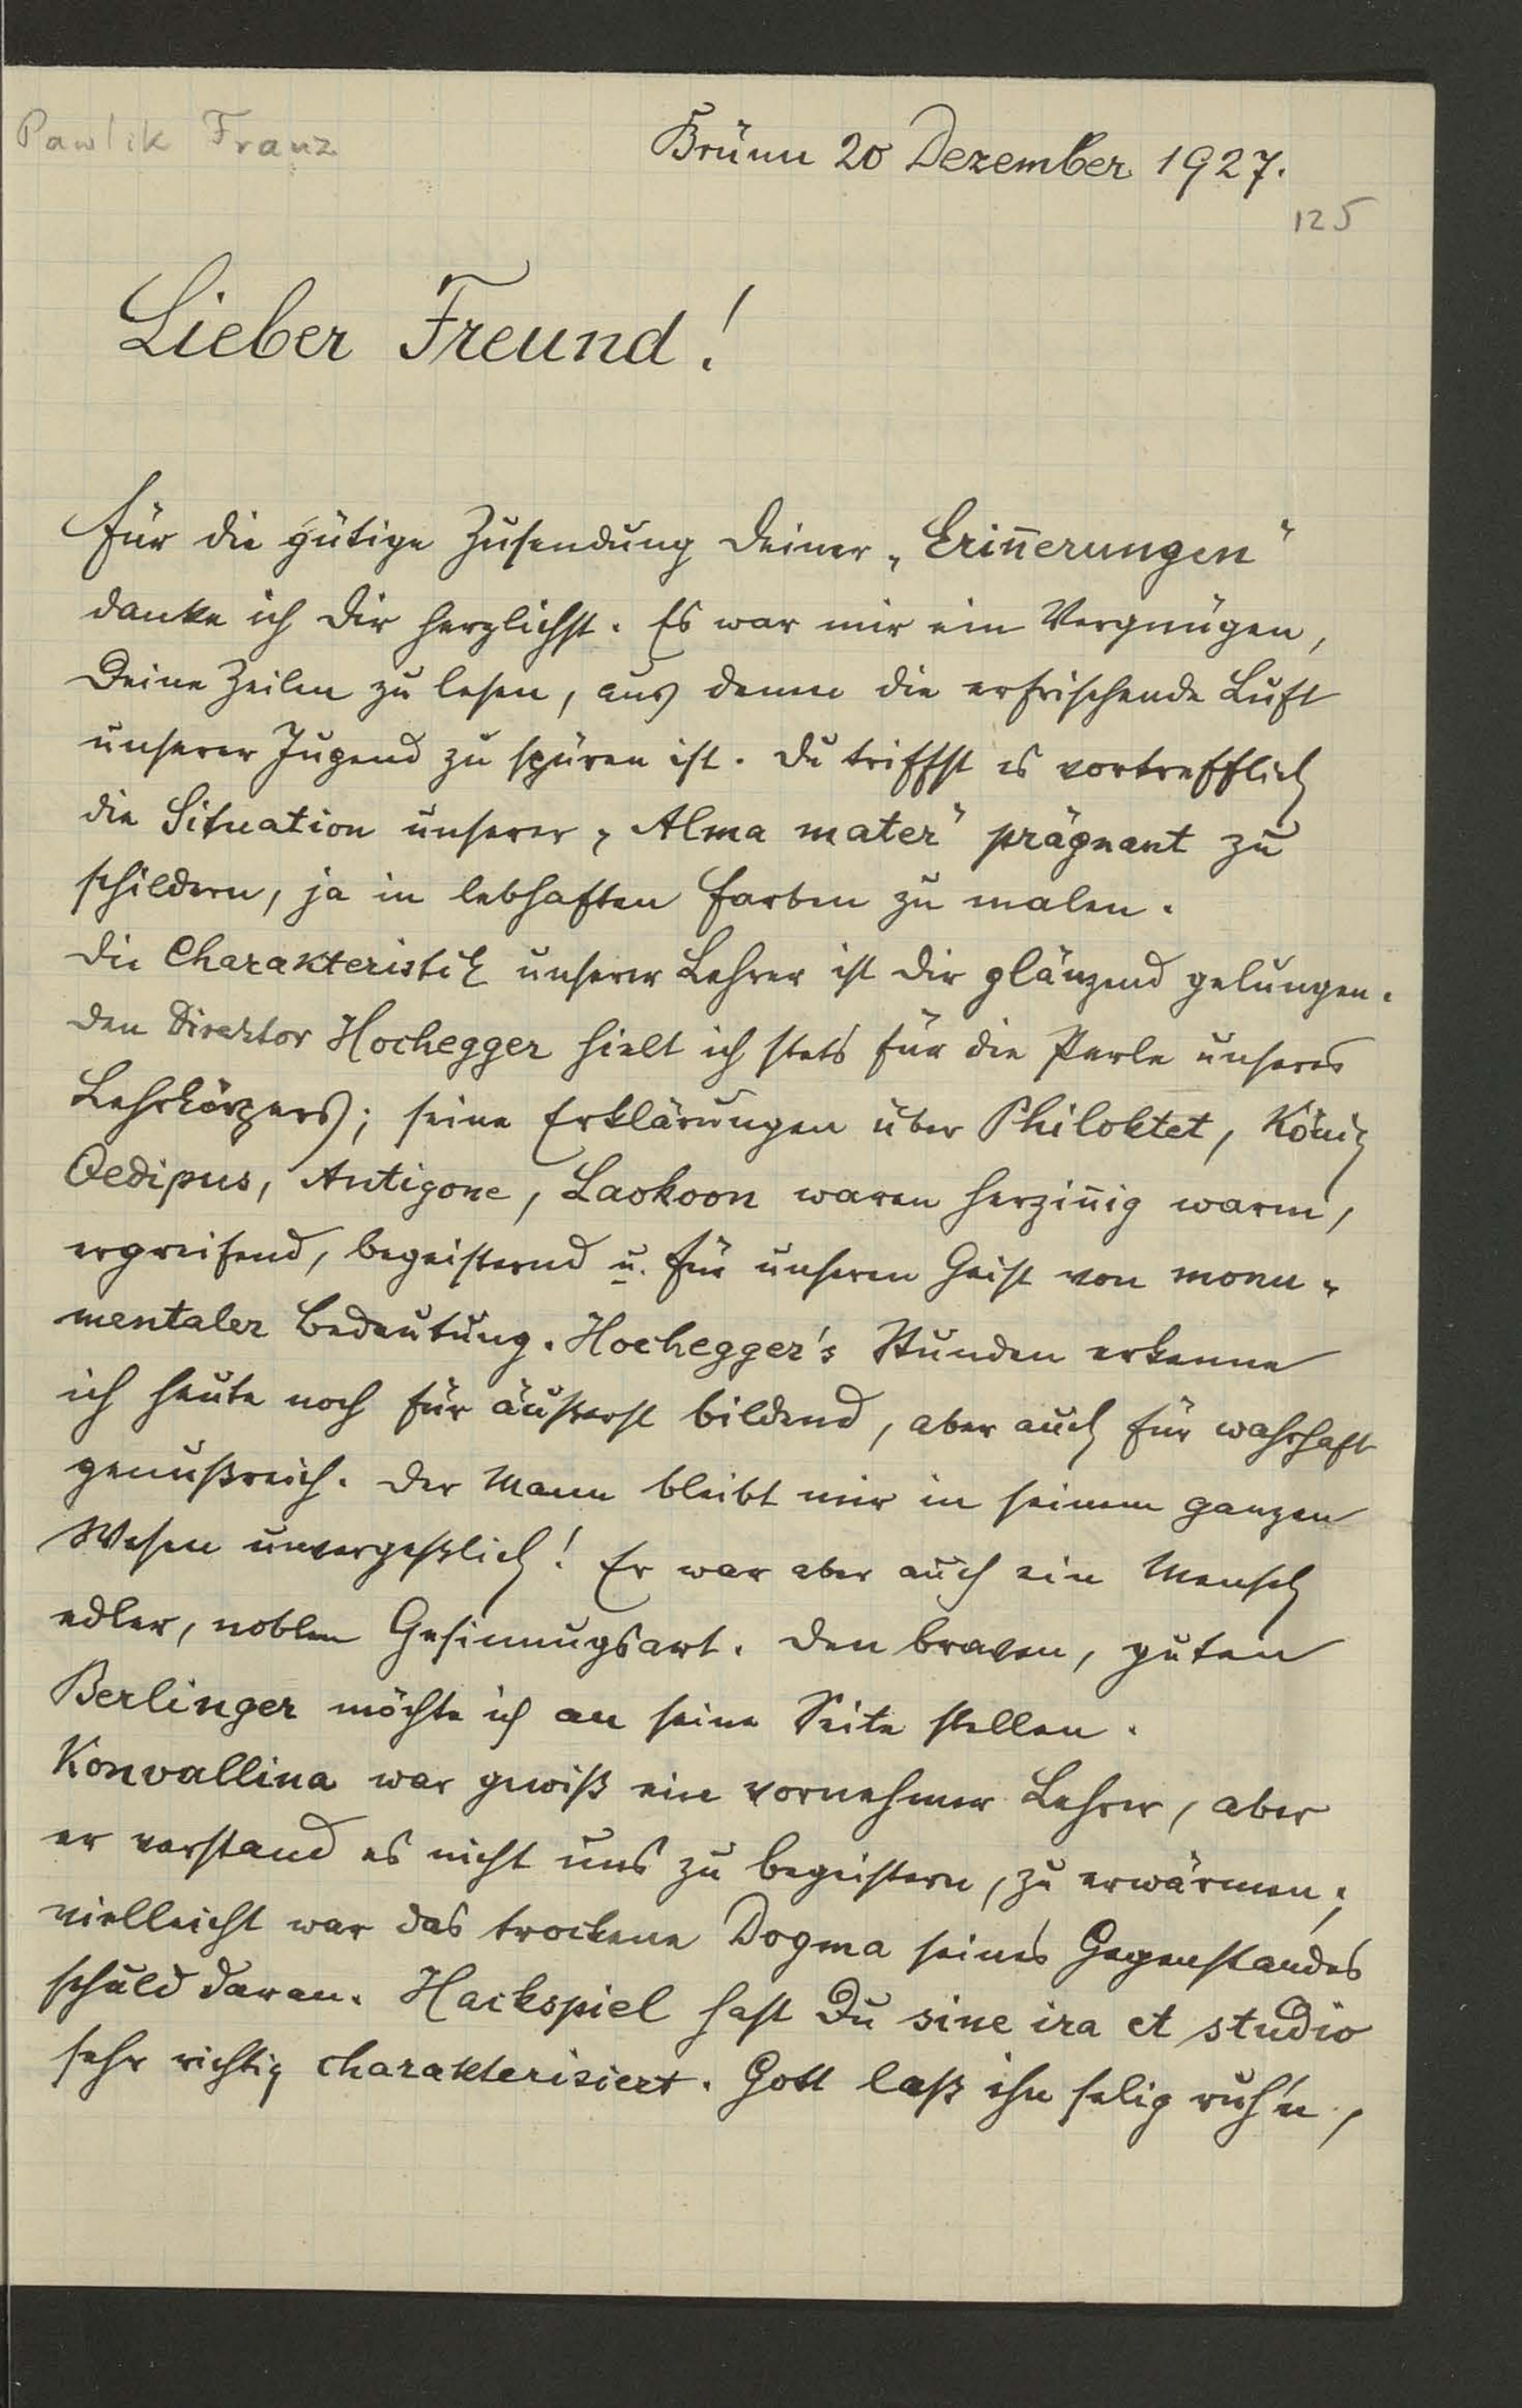 Pawlik Franz
Brünn 20 Dezember 1927.
125
Lieber Freund!
Für die gütige Zusendung Deiner „Erin̄erungen"
danke ich Dir herzlichst. Es war mir ein Vergnügen,
Deine Zeilen zu lesen, aus denen die erfrischende Luft
unserer Jugend zu spüren ist. Du triffst es vortrefflich
die Situation unserer „Alma mater" prägnant zu
schildern, ja in lebhaften Farben zu malen.
Die Charakteristik unserer Lehrer ist Dir glänzend gelungen.
Den Direktor Hochegger hielt ich stets für die Perle unseres
Lehrkörpers; seine Erklärungen über Philoktet, König
Oedipus, Antigone, Laokoon waren herzin̄ig warm,
ergreifend, begeisternd u. für unseren Geist von monu-
mentaler Bedeutung. Hochegger's Stunden erkenne
ich heute noch für äußerst bildend, aber auch für wahrhaft
genußreich. Der Mann bleibt mir in seinem ganzen
Wesen unvergeßlich! Er war aber auch ein Mensch
edler, noblen Gesinnugsart. Den braven, guten
Berlinger möchte ich an seine Seite stellen.
Konvallina war gewiß ein vornehmer Lehrer, aber
er verstand es nicht uns zu begeistern, zu erwärmen;
vielleicht war das trockene Dogma seines Gegenstandes
schuld daran. Hackspiel hast Du sine ira et studio
sehr richtig charakterisiert. Gott laß ihn selig ruh'n,